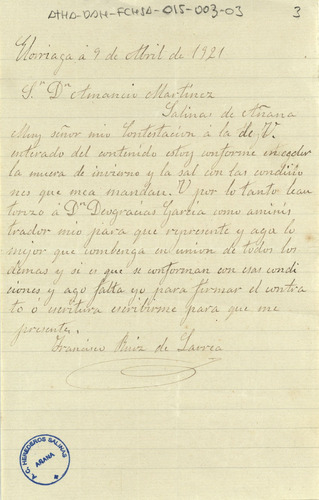 ATHA-DAH-FCHSA-015-003-03
3
Elorriaga á 9 de Abril de 1921
Sr Dn Amancio Martínez
Salinas de Añana
Muy señor mio Contestacion á la de V.
enterado del contenido estoy conforme en ceder
la muera de invierno y la sal con las condicio
nes que mea mandau. V por lo tanto leau
torizo á Dn Deogracias Garcia como aminis
trador mio para que represente y aga lo
mejor que combenga en union de todos los
demas y si es que se conforman con esas condi
ciones y ago falta yo para firmar el contra
to ó escritura escribirme para que me
presente.
Francisco Ruiz de Larrea
A.C. HEREDEROS SALINAS
AÑANA